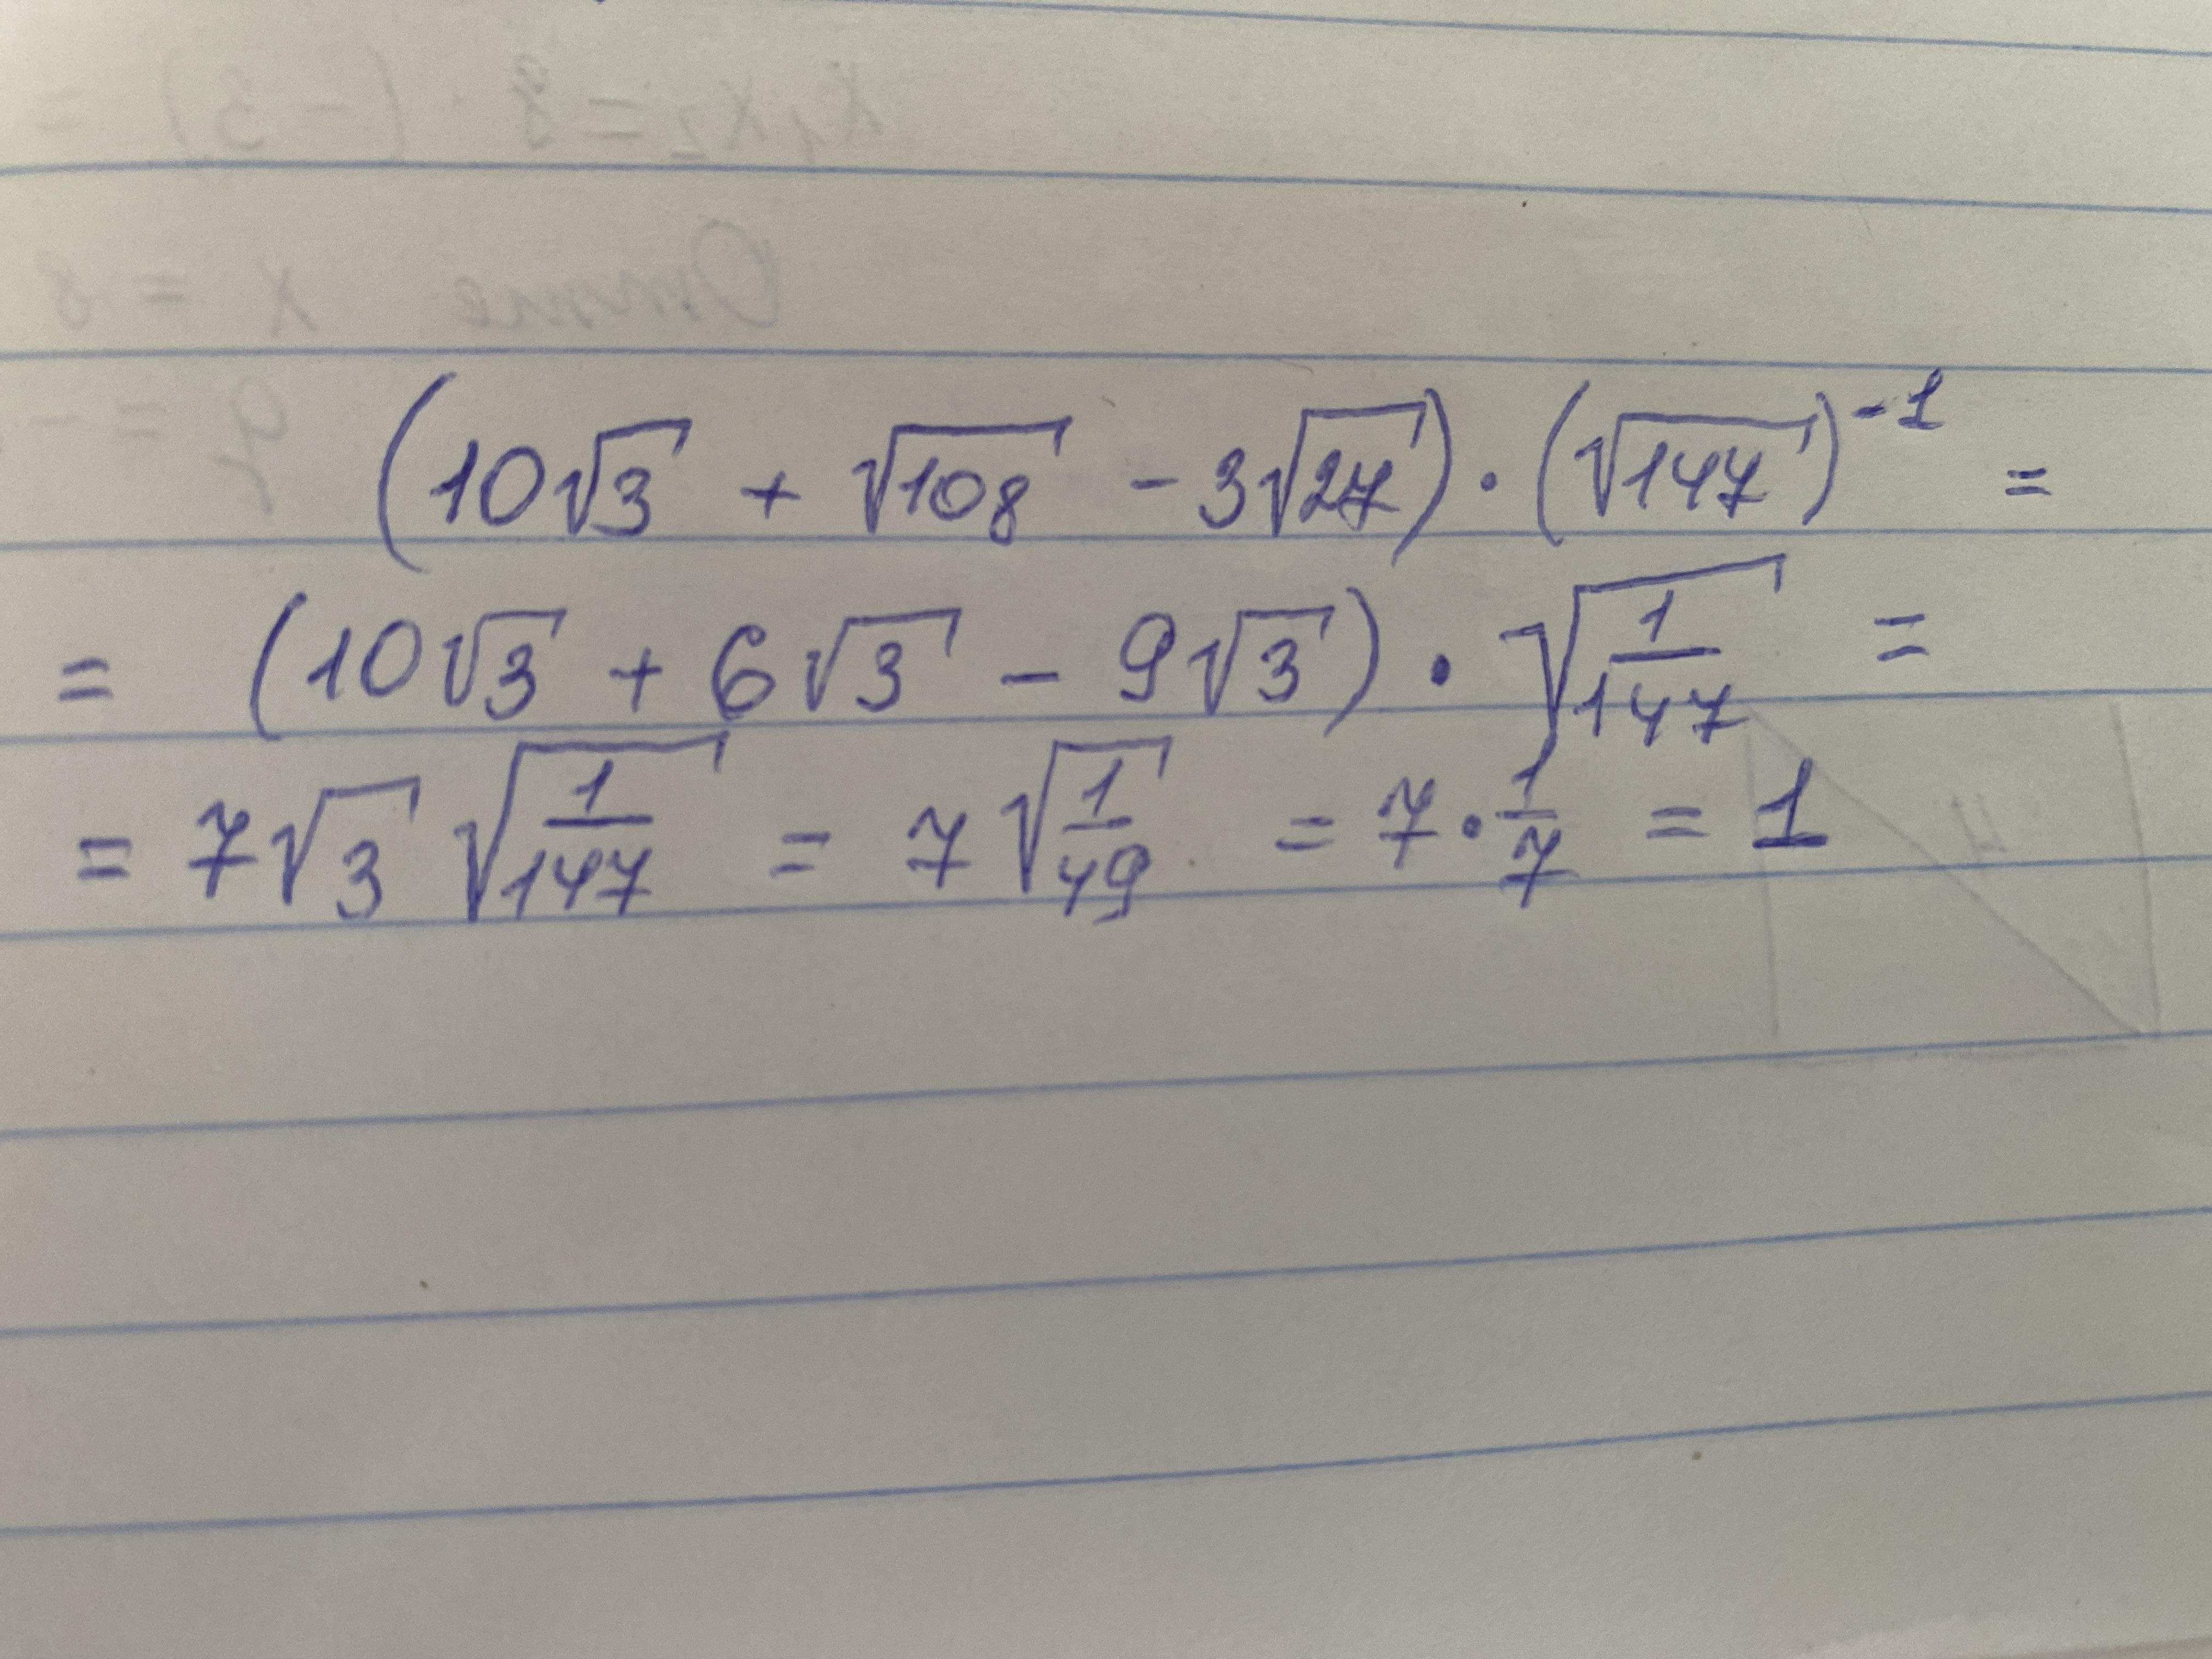 (10√3 + √108 - 3√27) · (√147)⁻¹ =
= (10√3 + 6√3 - 9√3) · √(1/147) =
= 7√3 √(1/147) = 7√(1/49) = 7 · 1/7 = 1